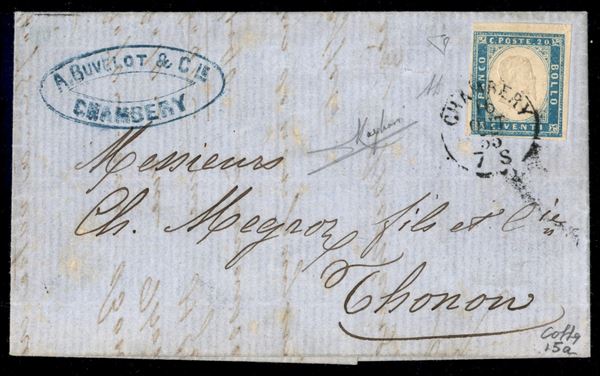 A. BUVELOT & CIE
CHAMBERY
C. POSTE. 20.
FRANCO
BOLLO
C. VENTI
CHAMBERY
55
7 S
Messieurs
Ch. Megroz fils et Cie
Thonon
15a